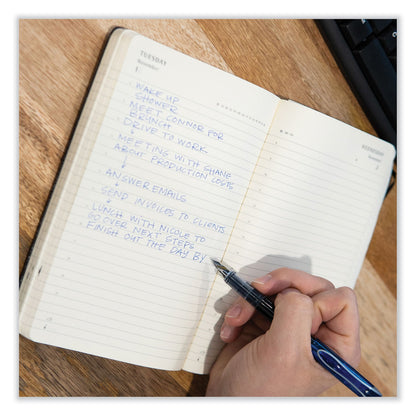 TUESDAY
November
1
WAKE UP
SHOWER
MEET CONNOR FOR
BRUNCH
DRIVE TO WORK
MEETING WITH SHANE
ABOUT PRODUCTION COSTS
ANSWER EMAILS
SEND INVOICES TO CLIENTS
LUNCH WITH NICOLE TO
GO OVER NEXT STEPS
FINISH OUT THE DAY BY
WEDNESDAY
November
2